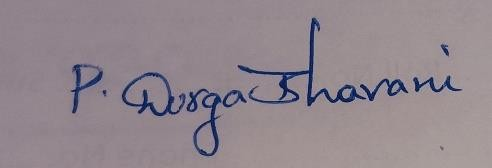 P. Durga Bhavani